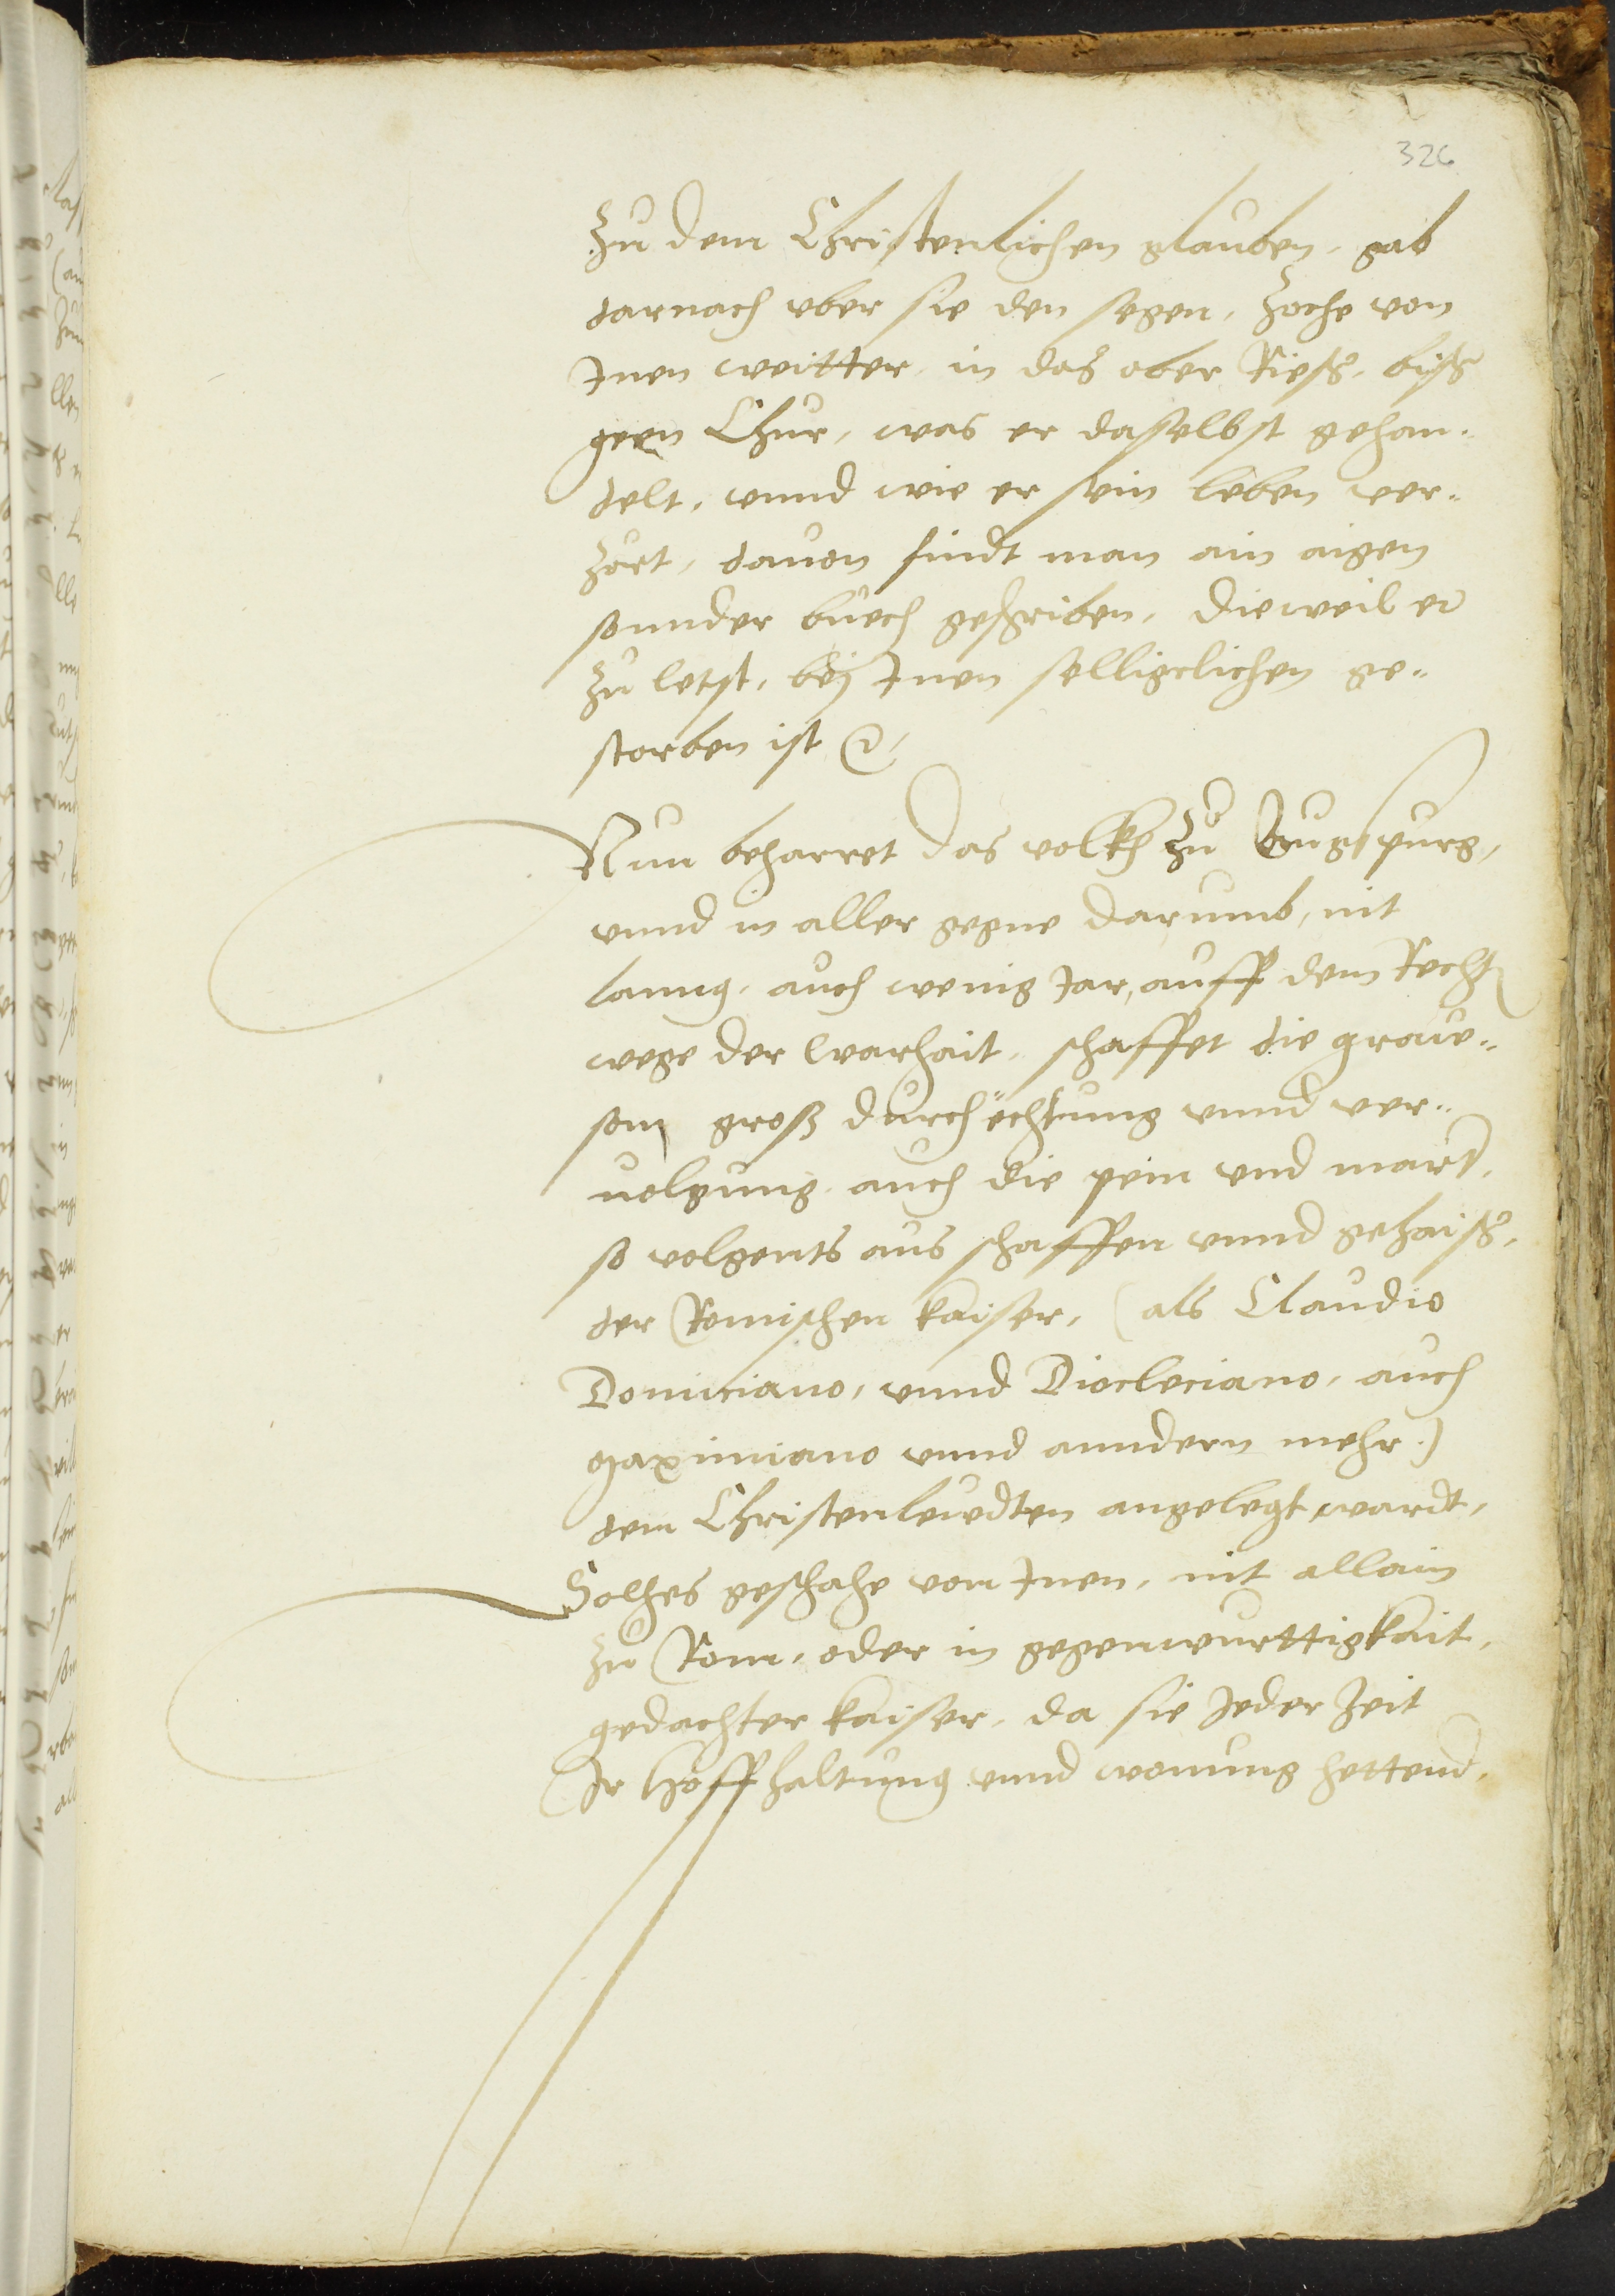 326
Zu dem Christenlichen glauben, gab
darnach vber sie den segen, Zoche von
Inen weitter, in das ober Riess, biss
geen Chur, was er daselbst gehan-
delt, vnnd wie er sein leben ver-
Zört, dauon findt man ain aigen
sonnder buech geschriben, dieweil er
Zu letst, beÿ Inen selligclichen ge-
storben ist
Nun beharret das volkh Zů Augspurg,
vnnd in aller gegne darumb, nit
lanng, auch wenig Jar, auff dem Recht
wege der warhait, schaffet die graue-
som gross durchëchtung vnnd ver-
uolgung, auch die pein vnd marter,
so volgents aus schaffen vnnd gehaiss,
der Romischen kaiser, (als Claudio
Domiciano, vnnd Diocleciano, auch
Maximiano vnnd anndern mehr.)
dem Christenleuedten angelegt wardt,
Solhes geschahe von Inen, nit allain
Zu Rom, oder in gegenwurttigkait,
gedachter kaiser, da sie Jeder Zeit
Ir Hoffhaltung vnnd wonung hettend,